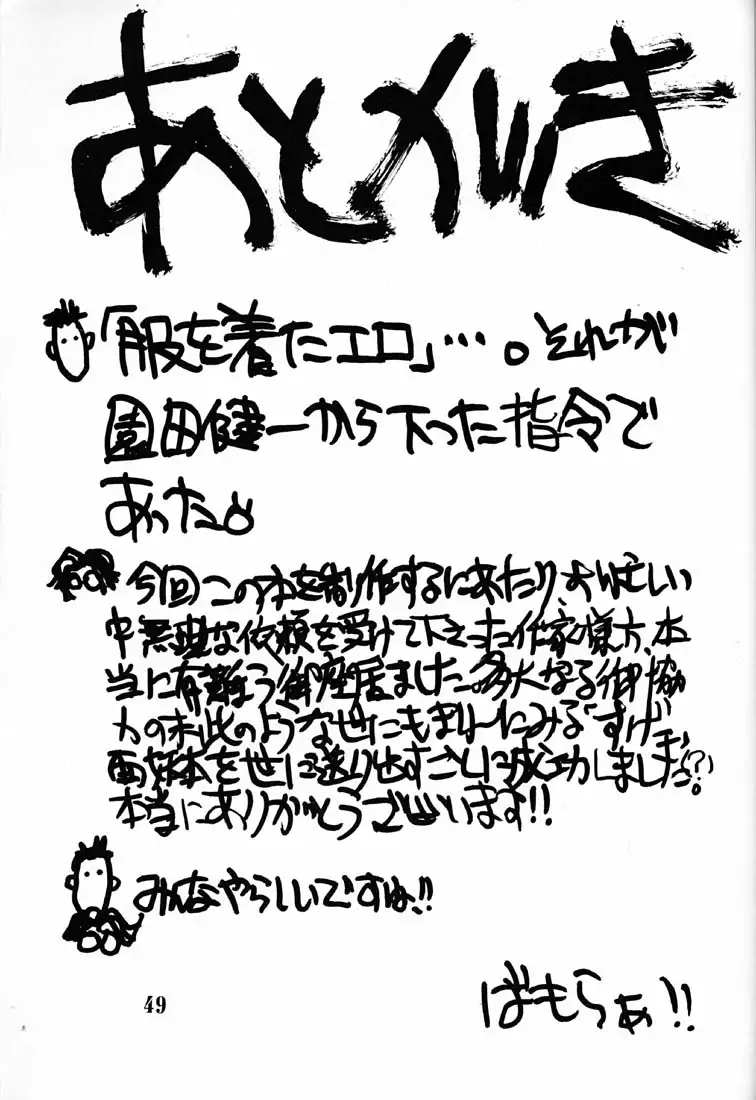 あとがき
「服を着たエロ」…。それが
園田健一から下った指令で
あった。
今回この本を制作するにあたり、お忙しい
中無理な依頼を受けて下さった作家様方、本
当に有難う御座居ました。多大なる御協
力の末此のような世にもまれにみる「すげー
面白本を世に送り出すことに成功しました?」
本当にありがとうございます!!
みんなやらしいですね!!
ばもらぁ!!
49